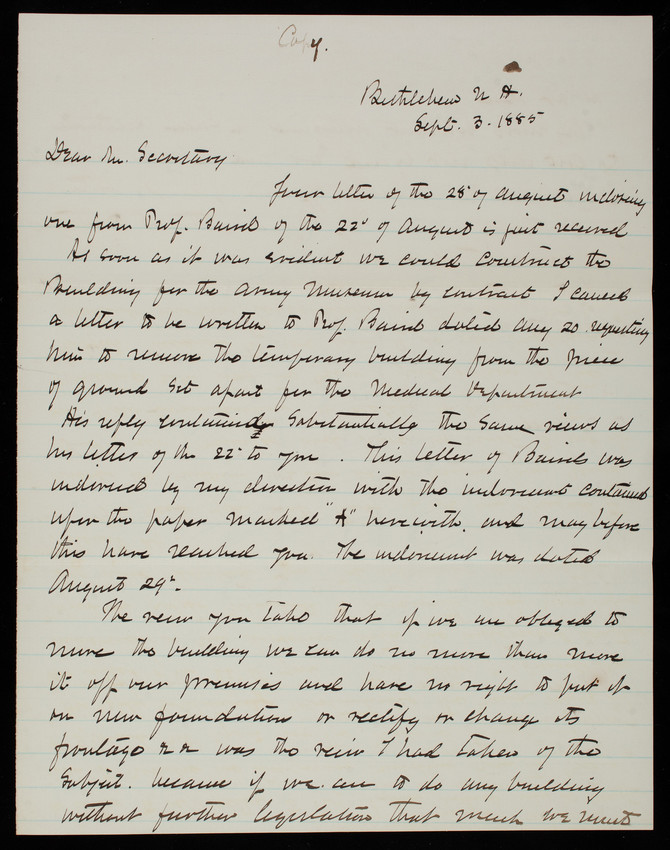 Copy.
Bethlehem N H.
Sept. 3. 1885
Dear Mr. Secretary
Your letter of the 28" of August inclosing
one from Prof. Baird of the 22d of August is just received
As soon as it was evident we could construct the
Building for the Army Museum by contract I caused
a letter to be written to Prof. Baird dated Aug 20. requesting
him to remove the temporary building from the piece
of ground set apart for the Medical Department
His reply contained substantially the same views as
his letter of the 22d to you. This letter of Baird's was
indorsed by my direction with the indorsement contained
upon the paper marked "A" herewith, and may before
this have reached you. The indorsement was dated
August 29".
The view you take that if we are obliged to
move the building we can do no more than move
it off our premises and have no right to put it
on new foundations or rectify or change its
frontage &c was the view I had taken of the
subject. because if we are to do any building
without further legislation that much we must